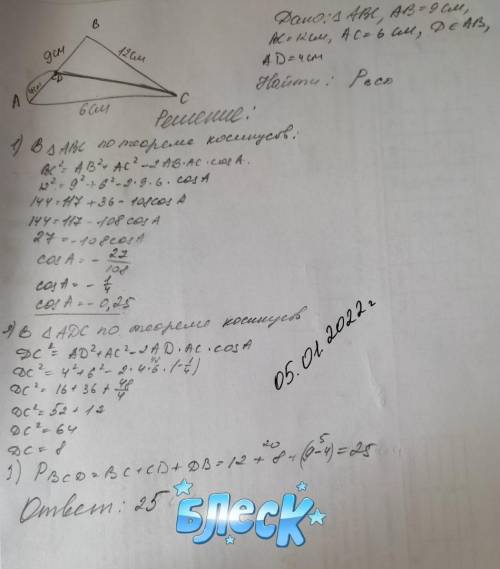 Дано: △ ABC, AB = 9 см,
BC = 12 см, AC = 6 см, D ∈ AB,
AD = 4 см
Найти: PBCD
B
9см
12см
D
4см
A
6см
C
Решение:
1) В △ ABC по теореме косинусов:
BC² = AB² + AC² - 2AB·AC·cosA.
12² = 9² + 6² - 2·9·6·cosA
144 = 117 + 36 - 108cosA
144 = 117 - 108cosA
27 = -108cosA
cosA = - 27/108
cosA = - 1/4
cosA = - 0,25
2) В △ ADC по теореме косинусов
DC² = AD² + AC² - 2AD·AC·cosA
DC² = 4² + 6² - 2·4·6·(-1/4)
DC² = 16 + 36 + 48/4
DC² = 52 + 12
DC² = 64
DC = 8
05.01.2022г
3) PBCD = BC + CD + DB = 12 + 8 + (9-4) = 25
20 5
Ответ: 25
БЛЕСК